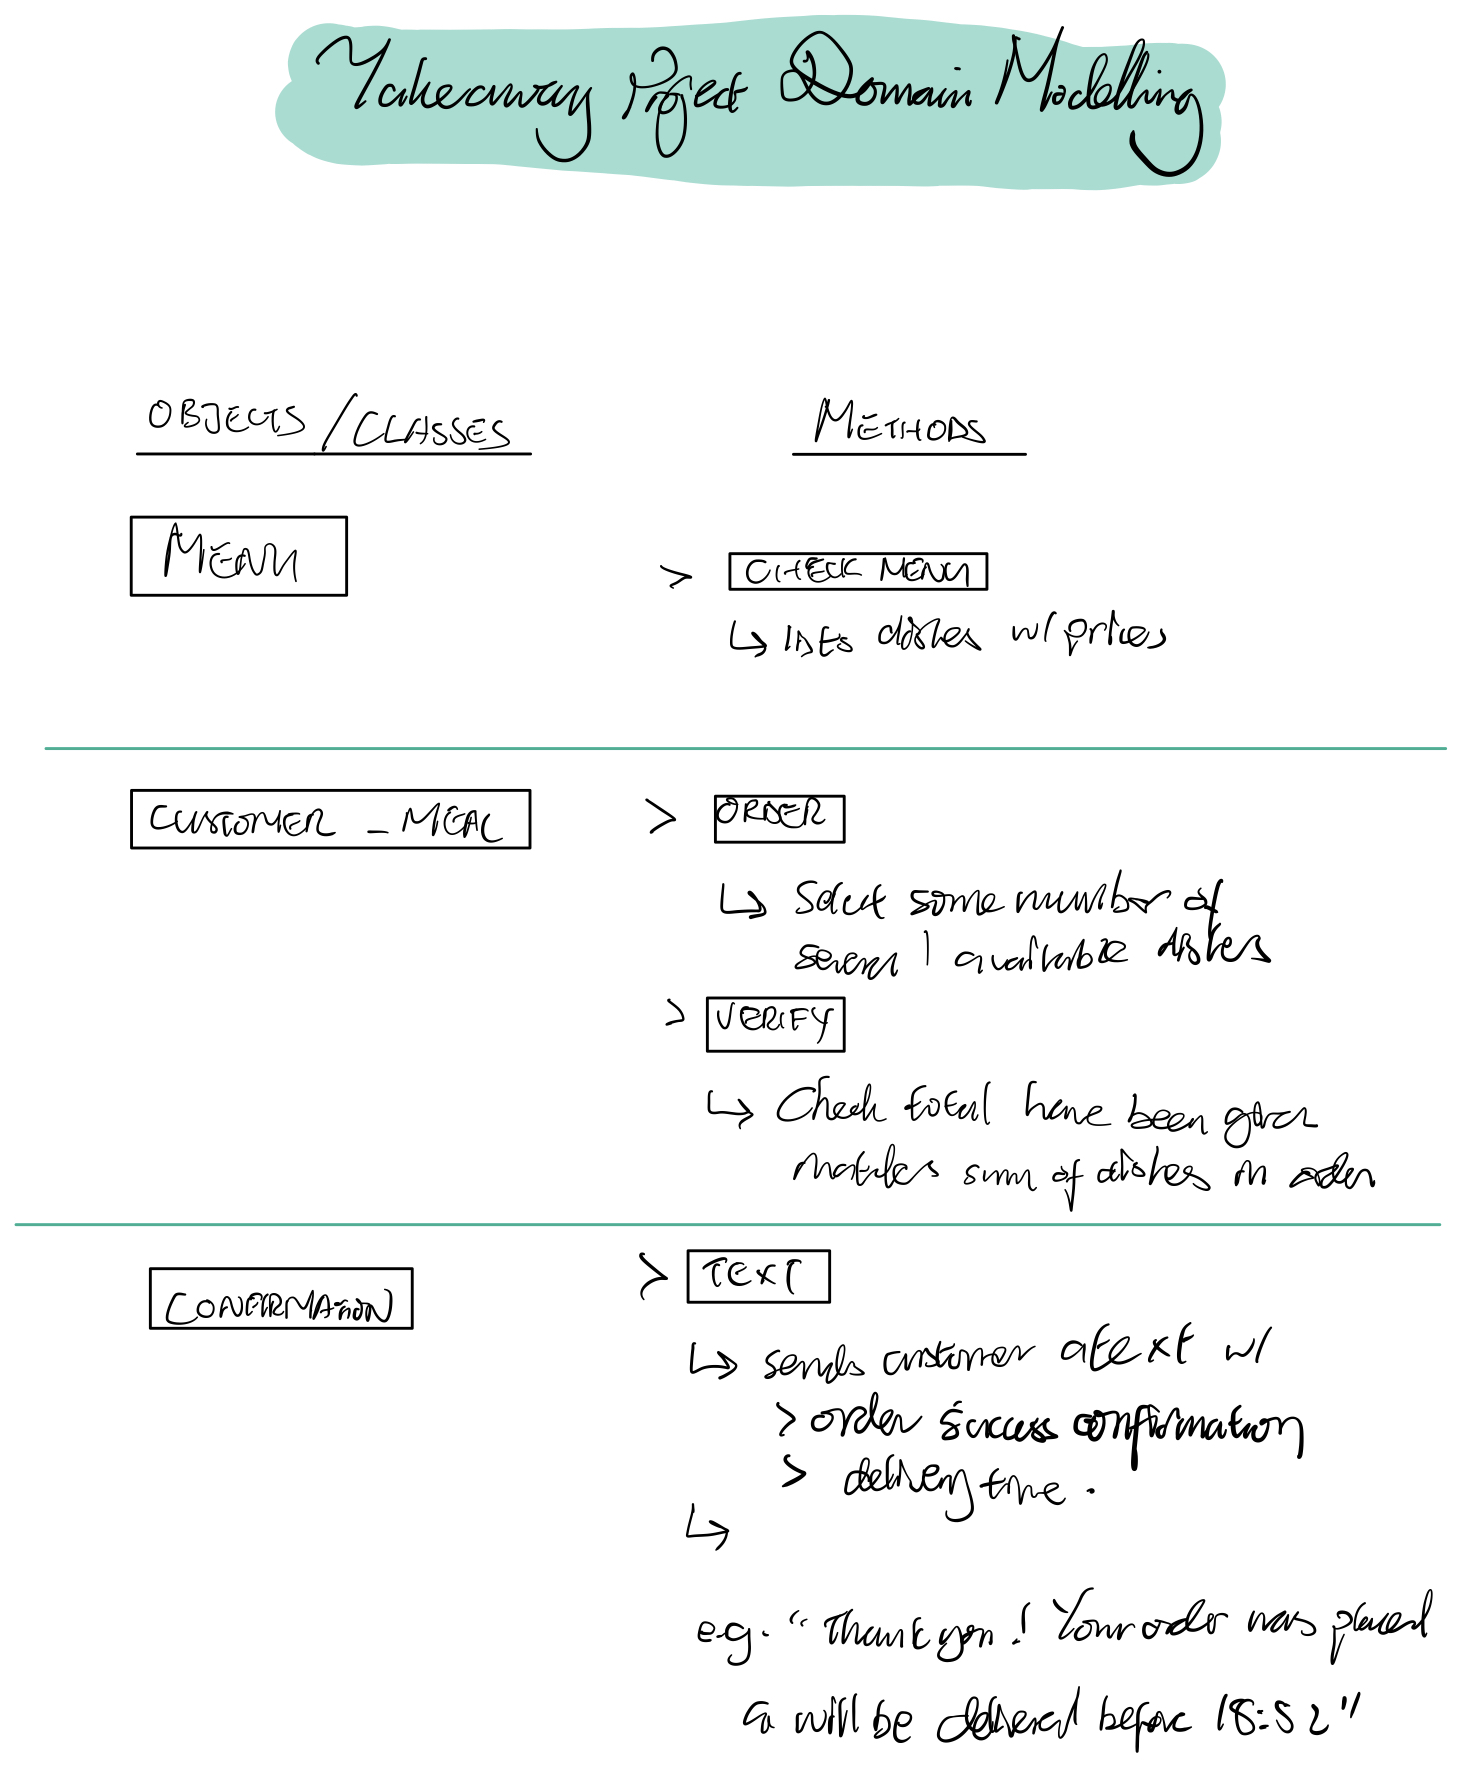 Takeaway Project Domain Modelling
OBJECTS / CLASSES
METHODS
MENU
> CHECK MENU
↳ lists dishes w/ prices
CUSTOMER _ MEAL
> ORDER
↳ Select some number of
several available dishes
> VERIFY
↳ Check total have been given
matches sum of dishes in order
CONFIRMATION
> TEXT
↳ sends customer a text w/
> order success confirmation
> delivery time.
↳
e.g. "Thank you! Your order was placed
& will be delivered before 18:52"